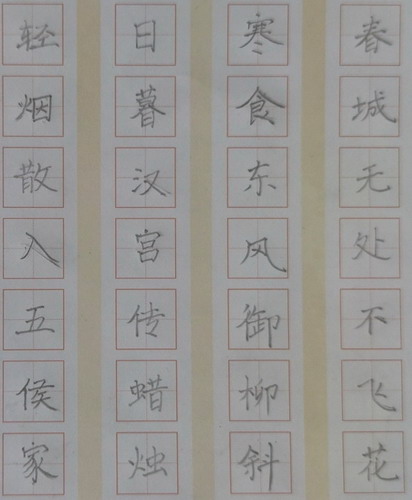 春城无处不飞花
寒食东风御柳斜
日暮汉宫传蜡烛
轻烟散入五侯家